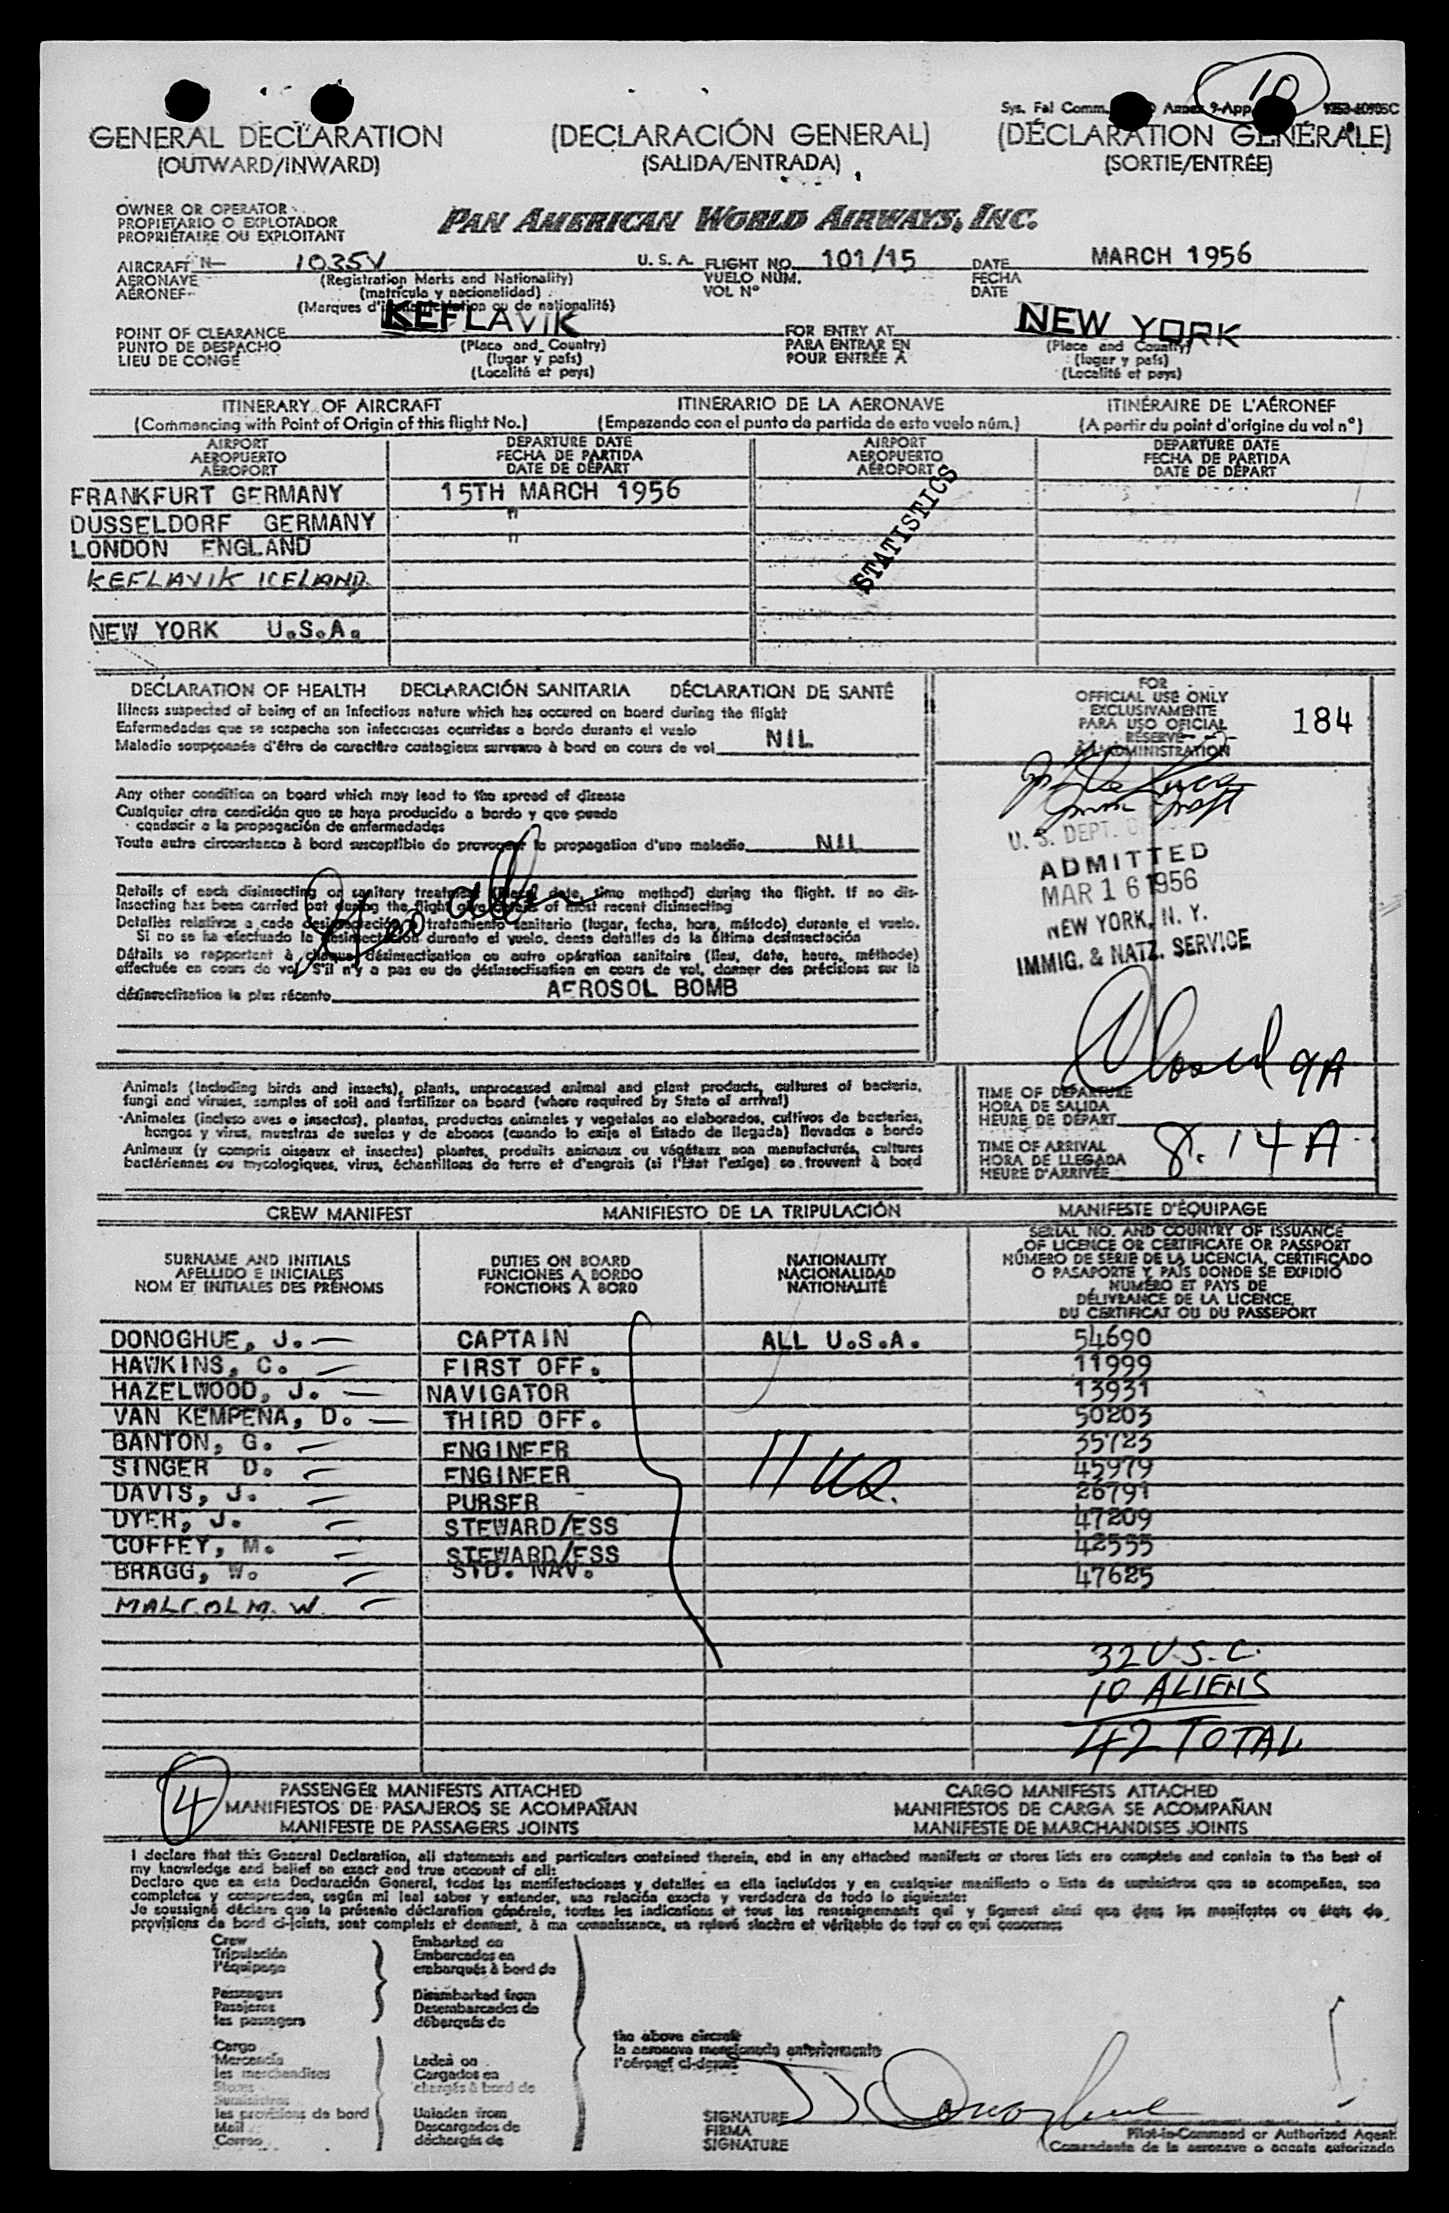 10
Sys. Fal Comm. Annex 9-App
GENERAL DECLARATION (DECLARACIÓN GENERAL) (DÉCLARATION GÉNÉRALE)
(OUTWARD/INWARD) (SALIDA/ENTRADA) (SORTIE/ENTRÉE)
OWNER OR OPERATOR
PROPIETARIO O EXPLOTADOR
PROPRIÉTAIRE OU EXPLOITANT
PAN AMERICAN WORLD AIRWAYS, INC.
AIRCRAFT N— 1035V U. S. A. FLIGHT NO. 101/15 DATE MARCH 1956
AERONAVE (Registration Marks and Nationality) VUELO NÚM. FECHA
AÉRONEF (matrícula y nacionalidad) VOL Nº DATE
(Marques d' ou de nationalité)
POINT OF CLEARANCE KEFLAVIK FOR ENTRY AT NEW YORK
PUNTO DE DESPACHO (Place and Country) PARA ENTRAR EN (Place and Country)
LIEU DE CONGÉ (lugar y país) POUR ENTRÉE À (lugar y país)
(Localité et pays) (Localité et pays)
ITINERARY OF AIRCRAFT ITINERARIO DE LA AERONAVE ITINÉRAIRE DE L'AÉRONEF
(Commencing with Point of Origin of this flight No.) (Empezando con el punto de partida de este vuelo núm.) (A partir du point d'origine du vol nº)
AIRPORT DEPARTURE DATE AIRPORT DEPARTURE DATE
AEROPUERTO FECHA DE PARTIDA AEROPUERTO FECHA DE PARTIDA
AÉROPORT DATE DE DÉPART AÉROPORT DATE DE DÉPART
FRANKFURT GERMANY 15TH MARCH 1956
DUSSELDORF GERMANY "
LONDON ENGLAND "
KEFLAVIK ICELAND
STATISTICS
NEW YORK U.S.A.
DECLARATION OF HEALTH DECLARACIÓN SANITARIA DÉCLARATION DE SANTÉ
Illness suspected of being of an infectious nature which has occured on board during the flight
Enfermedades que se sospecha son infecciosas ocurridas a bordo durante el vuelo
Maladie soupçonnée d'être de caractère contagieux survenue à bord en cours de vol NIL
FOR
OFFICIAL USE ONLY
EXCLUSIVAMENTE
PARA USO OFICIAL
RESERVÉ
À L'ADMINISTRATION
184
Any other condition on board which may lead to the spread of disease
Cualquier otra condición que se haya producido a bordo y que pueda
conducir a la propagación de enfermedades
Toute autre circonstance à bord susceptible de provoquer la propagation d'une maladie NIL
U. S. DEPT. O
ADMITTED
MAR 16 1956
NEW YORK, N. Y.
IMMIG. & NATZ. SERVICE
Details of each disinsecting or sanitary treatment (place, date, time method) during the flight. If no dis-
insecting has been carried out during the flight give details of most recent disinsecting
Detalles relativos a cada desinsectación o tratamiento sanitario (lugar, fecha, hora, método) durante el vuelo.
Si no se ha efectuado la desinsectación durante el vuelo, dense detalles de la última desinsectación
Détails se rapportant à chaque désinsectisation ou autre opération sanitaire (lieu, date, heure, méthode)
effectuée en cours de vol. S'il n'y a pas eu de désinsectisation en cours de vol, donner des précisions sur la
désinsectisation la plus récente AEROSOL BOMB
Closed 9A
Animals (including birds and insects), plants, unprocessed animal and plant products, cultures of bacteria,
fungi and viruses, samples of soil and fertilizer on board (where required by State of arrival)
Animales (incluso aves e insectos), plantas, productos animales y vegetales no elaborados, cultivos de bacterias,
hongos y virus, muestras de suelos y de abonos (cuando lo exija el Estado de llegada) llevados a bordo
Animaux (y compris oiseaux et insectes) plantes, produits animaux ou végétaux non manufacturés, cultures
bactériennes ou mycologiques, virus, échantillons de terre et d'engrais (si l'État l'exige) se trouvent à bord
TIME OF DEPARTURE
HORA DE SALIDA
HEURE DE DÉPART
TIME OF ARRIVAL
HORA DE LLEGADA
HEURE D'ARRIVÉE
8.14 A
CREW MANIFEST MANIFIESTO DE LA TRIPULACIÓN MANIFESTE D'ÉQUIPAGE
SURNAME AND INITIALS
APELLIDO E INICIALES
NOM ET INITIALES DES PRÉNOMS
DUTIES ON BOARD
FUNCIONES A BORDO
FONCTIONS À BORD
NATIONALITY
NACIONALIDAD
NATIONALITÉ
SERIAL NO. AND COUNTRY OF ISSUANCE
OF LICENCE OR CERTIFICATE OR PASSPORT
NÚMERO DE SERIE DE LA LICENCIA, CERTIFICADO
O PASAPORTE Y PAÍS DONDE SE EXPIDIÓ
NUMÉRO ET PAYS DE
DÉLIVRANCE DE LA LICENCE,
DU CERTIFICAT OU DU PASSEPORT
DONOGHUE, J. CAPTAIN ALL U.S.A. 54690
HAWKINS, C. FIRST OFF. 11999
HAZELWOOD, J. NAVIGATOR 13931
VAN KEMPENA, D. THIRD OFF. 50203
BANTON, G. ENGINEER 35723
SINGER D. ENGINEER 45979
DAVIS, J. PURSER 26791
DYER, J. STEWARD/ESS 47209
COFFEY, M. STEWARD/ESS 42555
BRAGG, W. STD. NAV. 47625
MALCOLM. W
11 US.
32 U.S.C.
10 ALIENS
42 TOTAL
4
PASSENGER MANIFESTS ATTACHED CARGO MANIFESTS ATTACHED
MANIFIESTOS DE PASAJEROS SE ACOMPAÑAN MANIFIESTOS DE CARGA SE ACOMPAÑAN
MANIFESTE DE PASSAGERS JOINTS MANIFESTE DE MARCHANDISES JOINTS
I declare that this General Declaration, all statements and particulars contained therein, and in any attached manifests or stores lists are complete and contain to the best of
my knowledge and belief an exact and true account of all:
Declaro que en esta Declaración General, todas las manifestaciones y detalles en ella incluídos y en cualquier manifiesto o lista de suministros que se acompañen, son
completos y comprenden, según mi leal saber y entender, una relación exacta y verdadera de todo lo siguiente:
Je soussigné déclare que la présente déclaration générale, toutes les indications et tous les renseignements qui y figurent ainsi que dans les manifestes ou états de
provisions de bord ci-joints, sont complets et donnent, à ma connaissance, un relevé sincère et véritable de tout ce qui concernes
Crew Embarked on
Tripulación Embarcados en
l'équipage embarqués à bord de
Passengers Disembarked from
Pasajeros Desembarcados de
les passagers débarqués de
the above aircraft
la aeronave mencionada anteriormente
l'aéronef ci-dessus
Cargo
Mercancía Laden on
les merchandises Cargados en
Stores chargés à bord de
Suministros
les provisions de bord Unladen from
Mail Descargados de
Correo déchargés de
SIGNATURE JJ Donoghue
FIRMA Pilot-in-Command or Authorized Agent
SIGNATURE Comandante de la aeronave o agente autorizado